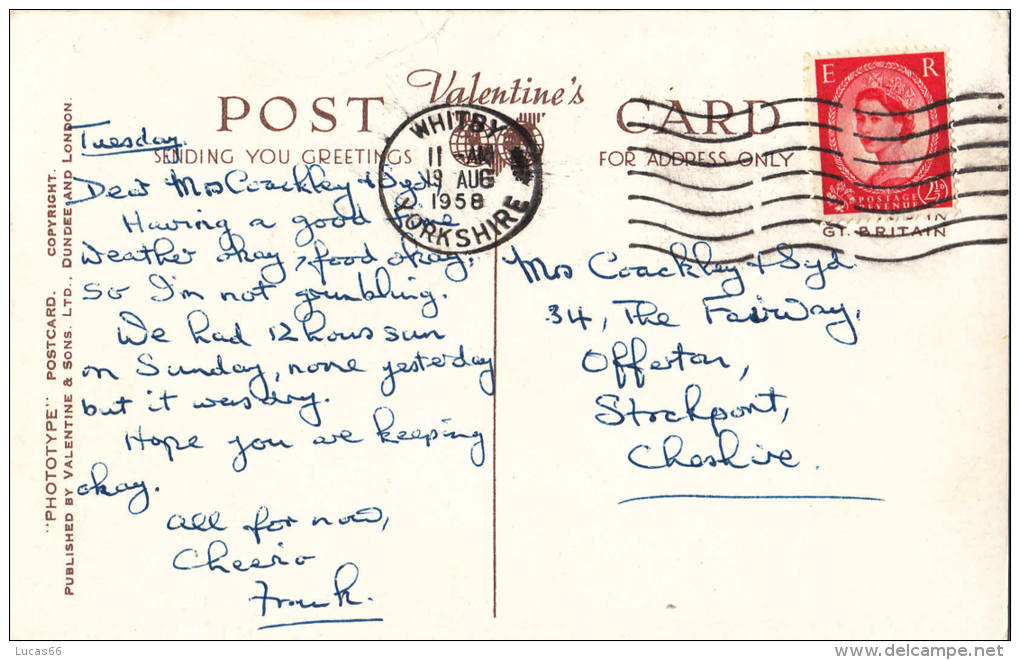 Valentine's
POST CARD
SENDING YOU GREETINGS
FOR ADDRESS ONLY
WHITBY
11 AM
19 AUG
1958
YORKSHIRE
E R
POSTAGE
REVENUE
2½D
GT. BRITAIN
"PHOTOTYPE" POSTCARD. COPYRIGHT.
PUBLISHED BY VALENTINE & SONS. LTD., DUNDEE AND LONDON.
Tuesday.
Dear Mrs Coackley & Syd,
Having a good time
weather okay, food okay,
so I'm not grumbling.
We had 12 hours sun
on Sunday, none yesterday
but it was dry.
Hope you are keeping
okay.
All for now,
Cheerio
Frank.
Mrs Coackley & Syd
34, The Fairway,
Offerton,
Stockport,
Cheshire.
Lucas66
www.delcampe.net